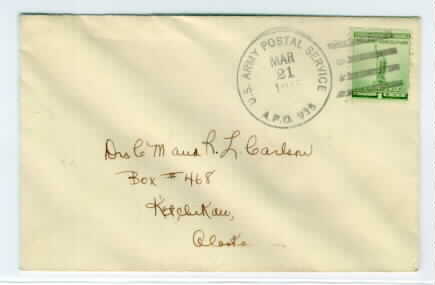 U.S. ARMY POSTAL SERVICE
MAR
21
A.P.O. 935
Drs C M and R. L. Carlson
Box # 468
Ketchikan,
Alaska